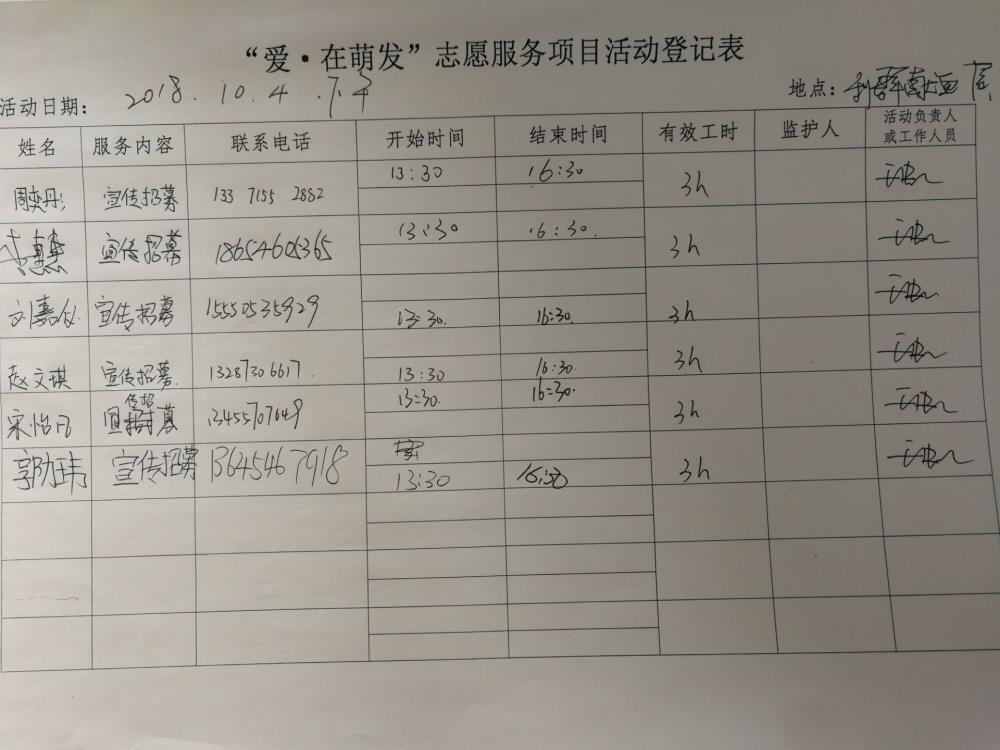 “爱·在萌发”志愿服务项目活动登记表
活动日期： 2018.10.4.下午 地点：
姓名 服务内容 联系电话 开始时间 结束时间 有效工时 监护人 活动负责人或工作人员
周奕丹 宣传招募 133 7155 2882 13:30 16:30 3h
宣传招募 18654605365 13:30 16:30. 3h
刘嘉仪 宣传招募 15550535929 13:30. 16:30. 3h
赵文琪 宣传招募. 13287306617. 13:30 16:30 3h
宋怡凡 宣传招募 13455707649 13:30. 16:30. 3h
郭励玮 宣传招募 13645467918 13:30 16:30 3h